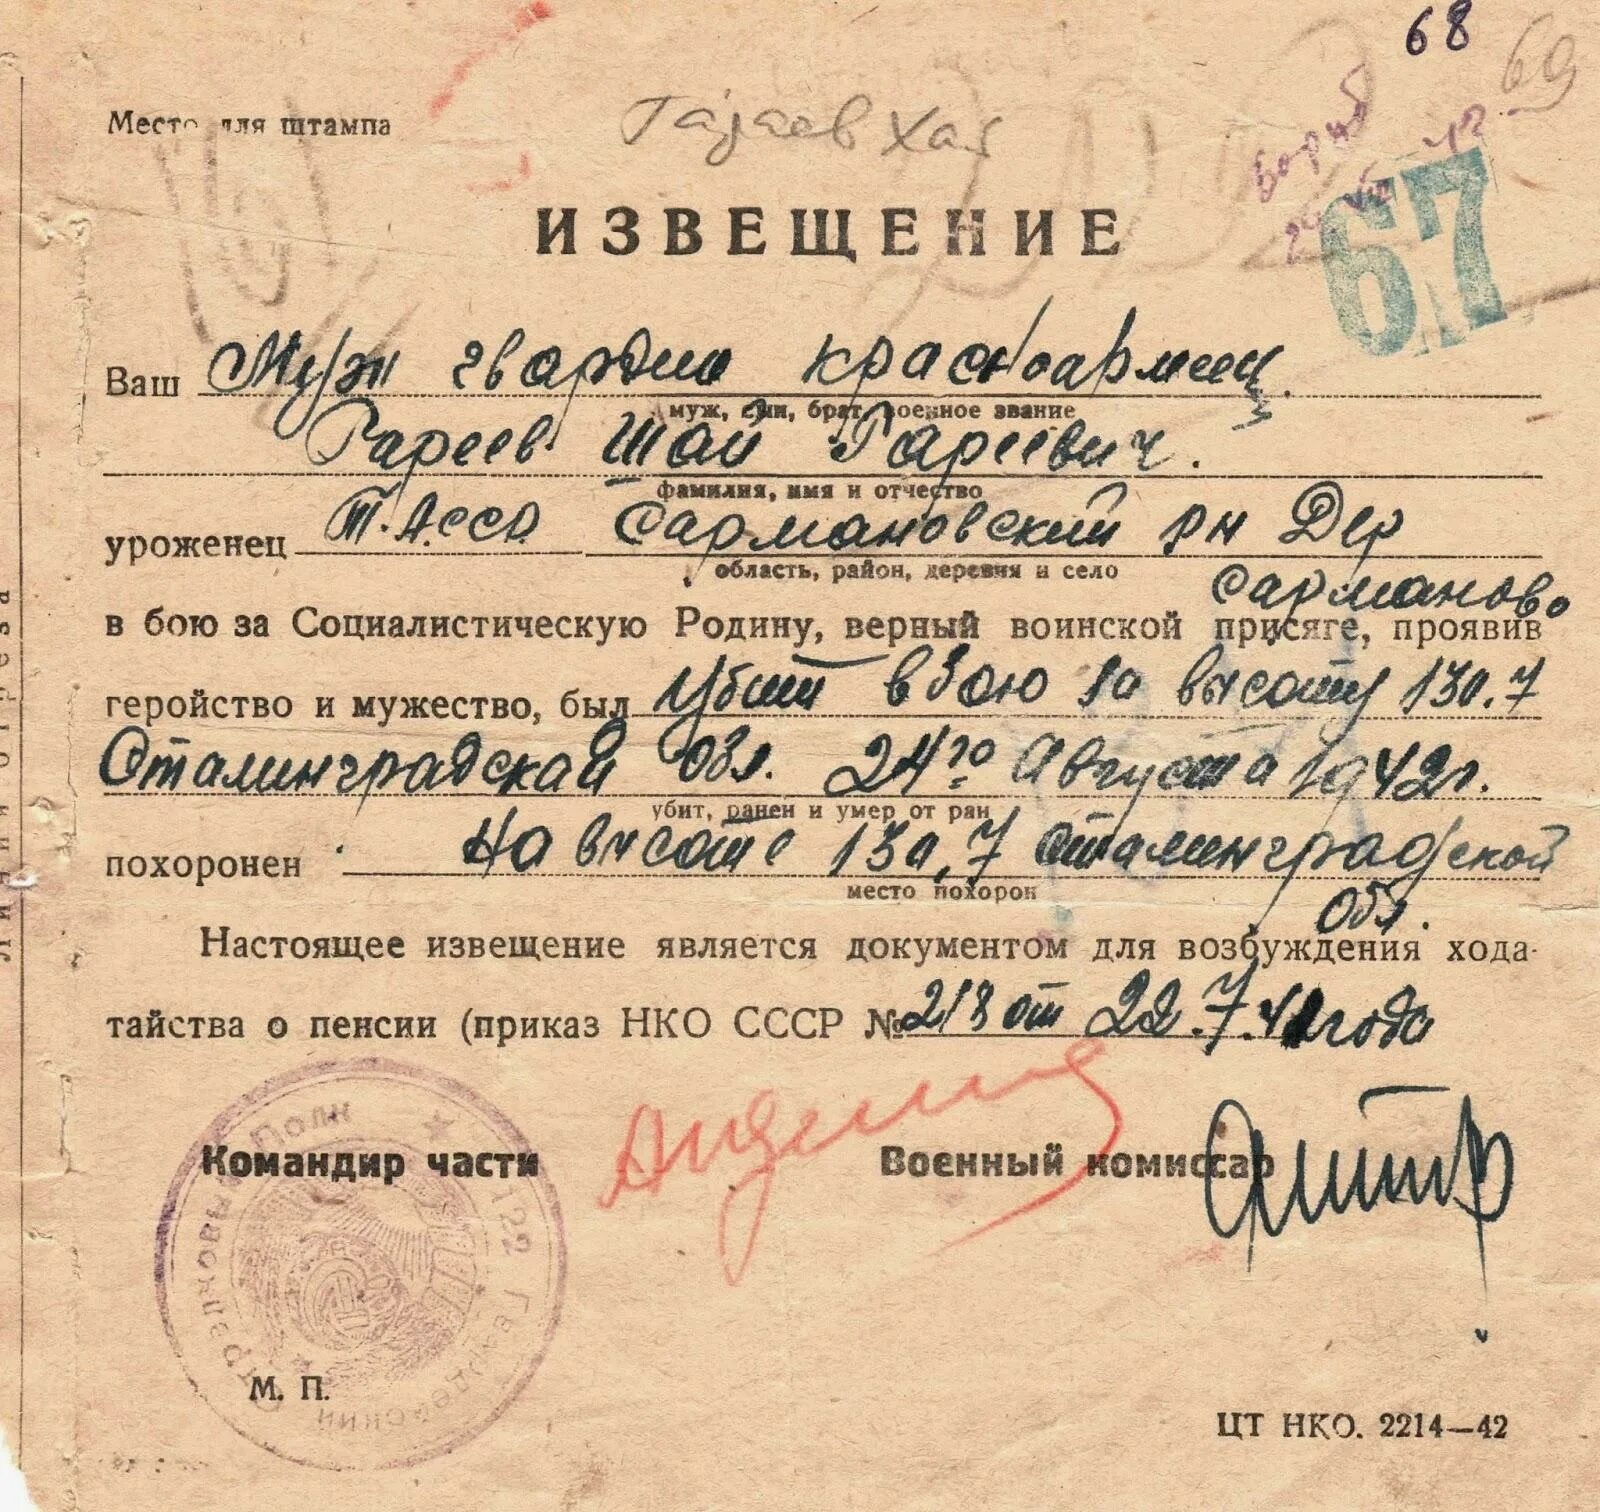 68
69
Место для штампа
67
ИЗВЕЩЕНИЕ
Ваш Муж гвардии красноармеец.
муж, сын, брат, военное звание
Гареев Шай Гареевич.
фамилия, имя и отчество
уроженец Т.АССР. Сармановский рн Дер
область, район, деревня и село
Сарманово
в бою за Социалистическую Родину, верный воинской присяге, проявив
геройство и мужество, был Убит в бою за высоту 130.7
Сталинградской обл. 24го Августа 1942г.
убит, ранен и умер от ран
похоронен На высоте 130,7 Сталинградской
место похорон
обл.
Настоящее извещение является документом для возбуждения хода-
тайства о пенсии (приказ НКО СССР № 218 от 22.7.42 года
Командир части Военный комиссар
122 Гвардейский Стрелковый Полк
М. П.
ЦТ НКО. 2214—42